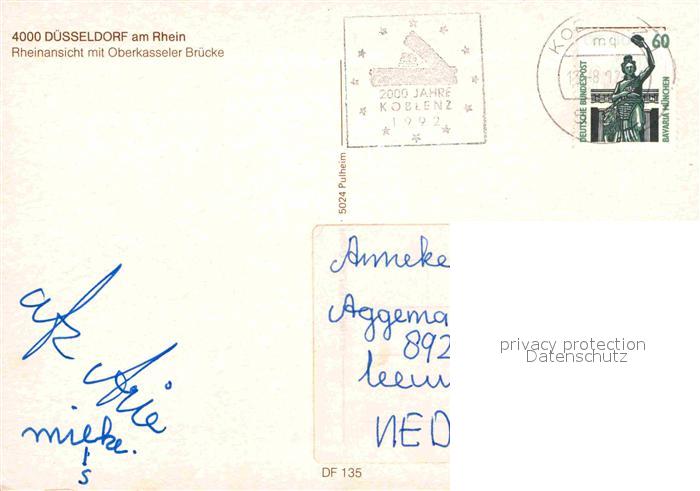 4000 DÜSSELDORF am Rhein
Rheinansicht mit Oberkasseler Brücke
2000 JAHRE
KOBLENZ
1992
60
DEUTSCHE BUNDESPOST
BAVARIA MÜNCHEN
5024 Pulheim
Anneke
Aggema
892
leeuw
NED
privacy protection
Datenschutz
Arie
mieke.
DF 135